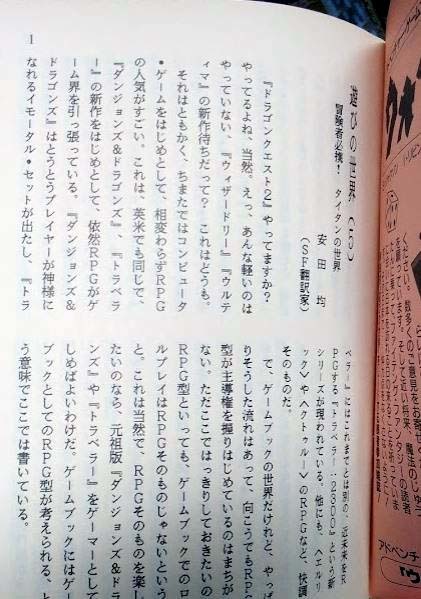 んたい。数多くのご意見をお寄せ
を願っています。そして近い将来、魔法のじゅう
アドベンチ
遊びの世界（5）
冒険者必携！ タイタンの世界
安田 均
（SF翻訳家）
『ドラゴンクエスト2』やってますか？
やってるよね、当然。えっ、あんな軽いのは
やっていない、『ウィザードリー』『ウルテ
ィマ』の新作待ちだって？ これはどうも。
それはともかく、ちまたではコンピュータ
・ゲームをはじめとして、相変わらずRPG
の人気がすごい。これは、英米でも同じで、
『ダンジョンズ&ドラゴンズ』、『トラベラ
ー』の新作をはじめとして、依然RPGがゲ
ーム界を引っ張っている。『ダンジョンズ&
ドラゴンズ』はとうとうプレイヤーが神様に
なれるイモータル・セットが出たし、『トラ
ベラー』にはこれまでとは別の、近未来をR
PGする『トラベラー：2300』という新
シリーズが現われている。他にも、〈エルリ
ック〉や〈クトゥルー〉のRPGなど、快調
そのものだ。
で、ゲームブックの世界だけれど、やっぱ
りそうした流れはあって、向こうでもRPG
型が主導権を握りはじめているのはまちが
ない。ただここではっきりしておきたいの
RPG型といっても、ゲームブックでのロ
ルプレイはRPGそのものじゃないという
と。これは当然で、RPGそのものを楽し
たいのなら、元祖版『ダンジョンズ&ドラ
ンズ』や『トラベラー』をゲーマーとして
しめばよいわけだ。ゲームブックにはゲー
ブックとしてのRPG型が考えられる、と
う意味でここでは書いている。
1